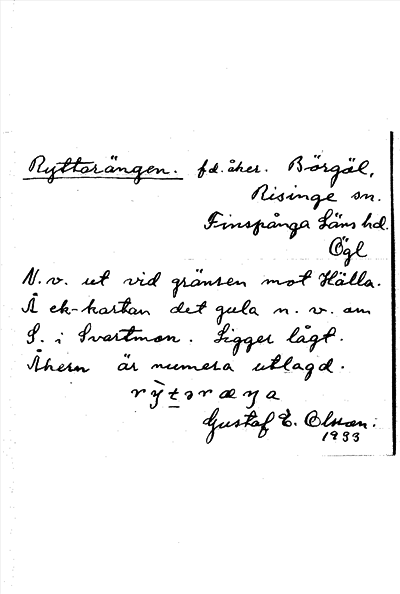 Ryttarängen. fd. åker. Börgöl,
Risinge sn.
Finspånga Läns hd.
Ögl
N.v. ut vid gränsen mot Hälla.
Å ek-kartan det gula n. v. om
S. i Svartmon. Ligger lågt.
Åkern är numera utlagd.
Gustaf E. Olsson.
1933